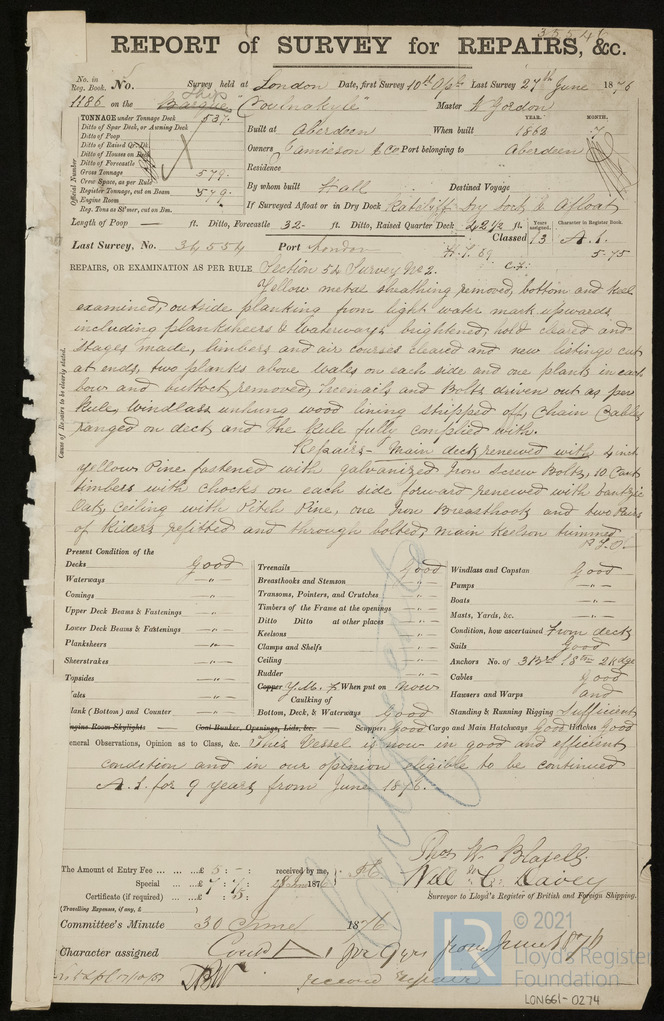 REPORT of SURVEY for REPAIRS, &c.
No. in Reg. Book. No. Survey held at London Date, first Survey 10th Last Survey 27th June 1876
1186 on the Ship Barque "Coulnakyle" Master A Gordon
TONNAGE under Tonnage Deck 537.
Ditto of Spar Deck, or Awning Deck
Ditto of Poop
Ditto of Raised Qr. Dk.
Ditto of Houses on Deck
Ditto of Forecastle
Gross Tonnage 579.
Crew Space, as per Rule
Register Tonnage, cut on Beam 579.
Engine Room
Reg. Tons as St'mer, cut on Bm.
Official Number
YEAR. MONTH.
Built at Aberdeen When built 1862
Owners Jamieson & Co Port belonging to Aberdeen
Residence
By whom built Hall Destined Voyage
If Surveyed Afloat or in Dry Dock Ratcliff Dry Dock & Afloat
Length of Poop — ft. Ditto, Forecastle 32- ft. Ditto, Raised Quarter Deck 42½ ft. Years assigned. Character in Register Book.
Last Survey, No. 34554 Port London Classed 13 A.1.
5-75
REPAIRS, OR EXAMINATION AS PER RULE Section 54 Survey No 2.
Cause of Repairs to be clearly stated.
Yellow metal sheathing removed, bottom and keel
examined, outside planking from light water mark upwards
including planksheers & waterways brightened, hold cleared and
stages made, limbers and air courses cleared and new listings cut
at ends, two planks above wales on each side and one plank in each
bow and buttock removed, treenails and Bolts driven out as per
Rule, Windlass unhung wood lining stripped off, Chain Cables
ranged on deck and the Rule fully complied with.
Repairs- Main deck renewed with 4 inch
yellow Pine fastened with galvanized Iron Screw Bolts, 10 Cant
timbers with chocks on each side forward renewed with
Ceiling with Pitch Pine, one Iron Breasthook and two Pairs
of Riders refitted and through bolted, main keelson trimmed
P.T.O.
Present Condition of the
Decks Good
Waterways "
Comings "
Upper Deck Beams & Fastenings "
Lower Deck Beams & Fastenings "
Planksheers "
Sheerstrakes "
Topsides "
ales "
lank (Bottom) and Counter "
ngine Room Skylights Coal Bunker, Openings, Lids, &c.
Treenails Good
Breasthooks and Stemson "
Transoms, Pointers, and Crutches "
Timbers of the Frame at the openings "
Ditto Ditto at other places "
Keelsons "
Clamps and Shelfs "
Ceiling "
Rudder "
Copper Y.M. When put on now
Caulking of
Bottom, Deck, & Waterways good
Windlass and Capstan Good
Pumps "
Boats "
Masts, Yards, &c. "
Condition, how ascertained From deck
Sails Good
Anchors No. of
Cables Good
Hawsers and Warps and
Standing & Running Rigging Sufficient
Scuppers Good Cargo and Main Hatchways Good Hatches Good
eneral Observations, Opinion as to Class, &c. This Vessel is now in good and efficient
condition and in our opinion eligible to be continued
A.1. for 9 years from June 1876.
The Amount of Entry Fee £ 5 : - : received by me,
Special £
Certificate (if required) :
(Travelling Expenses, if any, £ )
Will C. Davey
Surveyor to Lloyd's Register of British and Foreign Shipping.
Committee's Minute 30 June 1876
Character assigned for 9 yrs from June 1876
© 2021
LR
Lloyd's Register
Foundation
LON661-0274